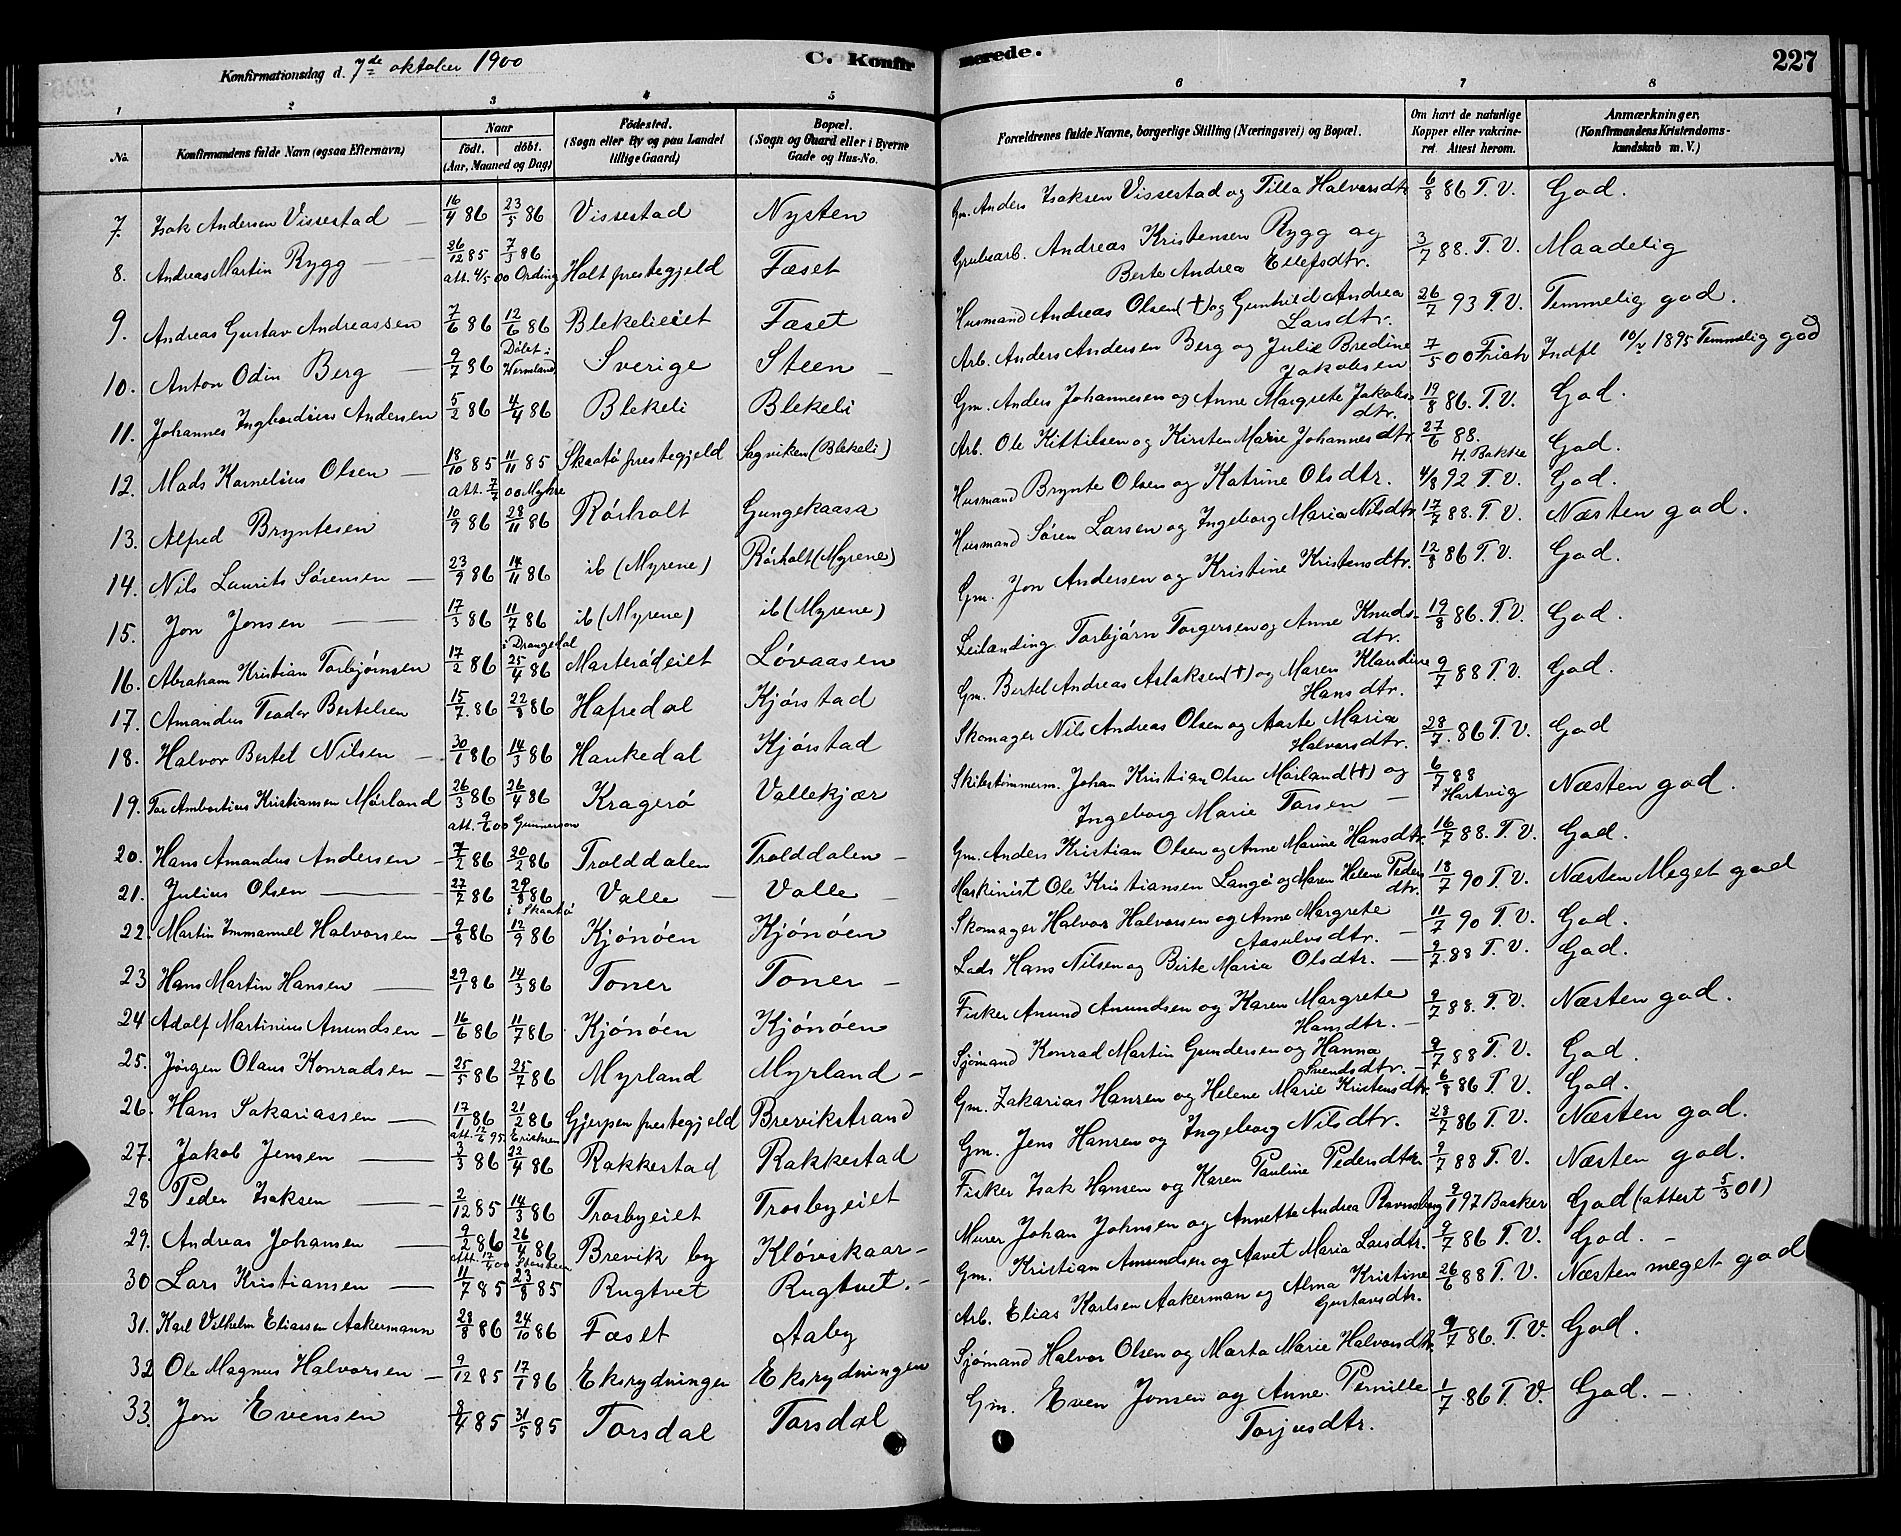 Konfirmationsdag d. 7de oktober 1900
C. Konfirmerede.
227
1 2 3 4 5 6 7 8
No.
Konfirmandens fulde Navn (ogsaa Efternavn)
Naar født. døbt. (Aar, Maaned og Dag)
Fødested. (Sogn eller By og paa Landet tillige Gaard)
Bopæl. (Sogn og Gaard eller i Byerne Gade og Hus-No.
Forældrenes fulde Navne, borgerlige Stilling (Næringsvei) og Bopæl.
Om havt de naturlige Kopper eller vakcineret. Attest herom.
Anmærkninger. (Konfirmandens Kristendomskundskab m. V.)
7. Isak Andersen Vissestad 16/4 86 23/5 86 Vissestad Nysten Gm. Anders Isaksen Vissestad og Tilla Halvorsdtr 6/8 86 T. V. God.
8. Andreas Martin Rygg 26/12 85 7/3 86 Holt prestegjeld Fæset Grubearb. Andreas Kristensen Rygg og Berte Andrea Ellefsdtr. 3/7 88. T. V. Maadelig
att. 4/5 00 Ording
9. Andreas Gustav Andreassen 7/6 86 12/6 86 Blekelieiet Fæset Husmand Andreas Olsen (†) og Gunhild Andrea Larsdtr. 26/7 93 T. V. Temmelig god.
10. Anton Odin Berg 9/7 86 Døbt i Wermland Sverige Steen Arb. Anders Andersen Berg og Julie Bredine Jakobsen 7/5 00 Frich Indfl 10/2 1895 Temmelig god
11. Johannes Ingbordius Andersen 5/2 86 4/4 86 Blekeli Blekeli Gm. Anders Johannesen og Anne Margrete Jakobsdtr. 19/8 86. T. V. God.
12. Mads Kornelius Olsen 18/10 85 11/11 85 Skaatø prestegjeld Sagviken (Blekeli) Arb. Ole Kittilsen og Kirsten Marie Johannesdtr. 27/6 88. H. Bakke God.
att. 7/7 00 Myhre
13. Alfred Bryntesen 10/9 86 28/11 86 Rørholt Gungekaasa Husmand Brynte Olsen og Katrine Olsdtr. 4/8 92 T. V. God.
14. Nils Laurits Sørensen 23/9 86 14/11 86 ib (Myrene) Rørholt (Myrene) Husmand Søren Larsen og Ingeborg Maria Nilsdtr 17/7 88. T. V. Næsten god.
15. Jon Jonsen 17/3 86 11/7 86 ib (Myrene) ib (Myrene) Gm. Jon Andersen og Kristine Kristensdtr. 12/8 86 T. V. God.
16. Abraham Kristian Torbjørnsen 17/2 86 i Drangedal 25/4 86 Marterødeiet Løvaasen Leilænding Torbjørn Torgersen og Anne Knudsdtr. 19/8 86. T. V. God.
17. Amandus Teodor Bertelsen 15/7. 86 22/8 86 Hafredal Kjørstad Gm. Bertel Andreas Aslaksen (†) og Maren Klaudine Hansdtr. 9/7 88 T. V. God.
18. Halvor Bertel Nilsen 30/1 86 14/3 86 Haukedal Kjørstad Skomager Nils Andreas Olsen og Aaste Maria Halvorsdtr. 28/7. 86 T. V. God
19. Tor Ambortius Kristiansen Mørland 26/3 86 26/4 86 Kragerø Vallekjær Skibstømmerm. Johan Kristian Olsen Mørland (†) og Ingeborg Marie Torsen 6/7 88 Hartvig Næsten god.
att. 9/6 00 Gunnerson
20. Hans Amandus Andersen 7/2 86 20/2 86 Trolddalen Trolddalen Gm. Anders Kristian Olsen og Anne Marine Hansdtr. 16/7 88. T. V. God.
21. Julius Olsen 27/7 86 29/8 86 i Skaatø Valle Valle Maskinist Ole Kristiansen Langø og Maren Helene Pedersdtr. 18/7 90 T. V. Næsten Meget god
22. Martin Immanuel Halvorsen 9/8 86 12/9 86 Kjønøen Kjønøen Skomager Halvor Halvorsen og Anne Margrete Aasulvsdtr. 11/7 90 T. V. God.
23 Hans Martin Hansen 29/1 86 14/3 86 Toner Toner Lods Hans Nilsen og Birte Maria Olsdtr. 9/7. 88 T. V. God.
24 Adolf Martinius Anundsen 16/6 86 11/7 86 Kjønøen Kjønøen Fisker Anund Anundsen og Karen Margrete Hansdtr. 9/7 88. T. V. Næsten god.
25. Jørgen Olaus Konradsen 25/5 86 25/7 86 Myrland Myrland Sjømand Konrad Martin Gundersen og Hanna Svendsdtr. 9/7 88 T. V. God.
26. Hans Sakariassen 17/1 86 21/2 86 Gjerpen prestegjeld Brevikstrand Gm. Zakarias Hansen og Helene Marie Kristensdtr. 6/8 86 T. V. God.
att. 12/6 95. Eriksen
27. Jakob Jensen 3/3 86 22/4 86 Rakkestad Rakkestad Gm. Jens Hansen og Ingeborg Nilsdtr. 28/7 86 T. V. Næsten god.
28 Peder Isaksen 2/12 85 14/3 86 Trosbyeiet Trosbyeiet Fisker Isak Hansen og Karen Pauline Pedersdtr. 9/7 88 T. V. Næsten god.
29. Andreas Johansen 9/2 86 26/4 86 Brevik by Kløveskaar Murer Johan Johnsen og Annette Andrea Ravnsborg 9/1 97 Basker God (attert 5/3 01)
30 Lars Kristiansen 11/7 85 23/8 85 Rugtvet Rugtvet. Gm. Kristian Amundsen og Aavet Maria Larsdtr. 9/7 86 T. V. God.
31. Karl Vilhelm Eliassen Aakermann 28/8 86 24/10 86 Fæset Aaby Arb. Elias Karlsen Aakerman og Alma Kristine Gustavsdtr. 26/6 88 T. V. Næsten meget god
32 Ole Magnus Halvorsen 9/12 85 17/1 86 Eksrydningen Eksrydningen Sjømand Halvor Olsen og Marta Marie Halvorsdtr. 9/7 86. T. V. God.
33. Jon Evensen 8/4 85 31/5 85 Torsdal Torsdal Gm. Even Jonsen og Anne Pernille Torjusdtr. 1/7 86 T. V. God.